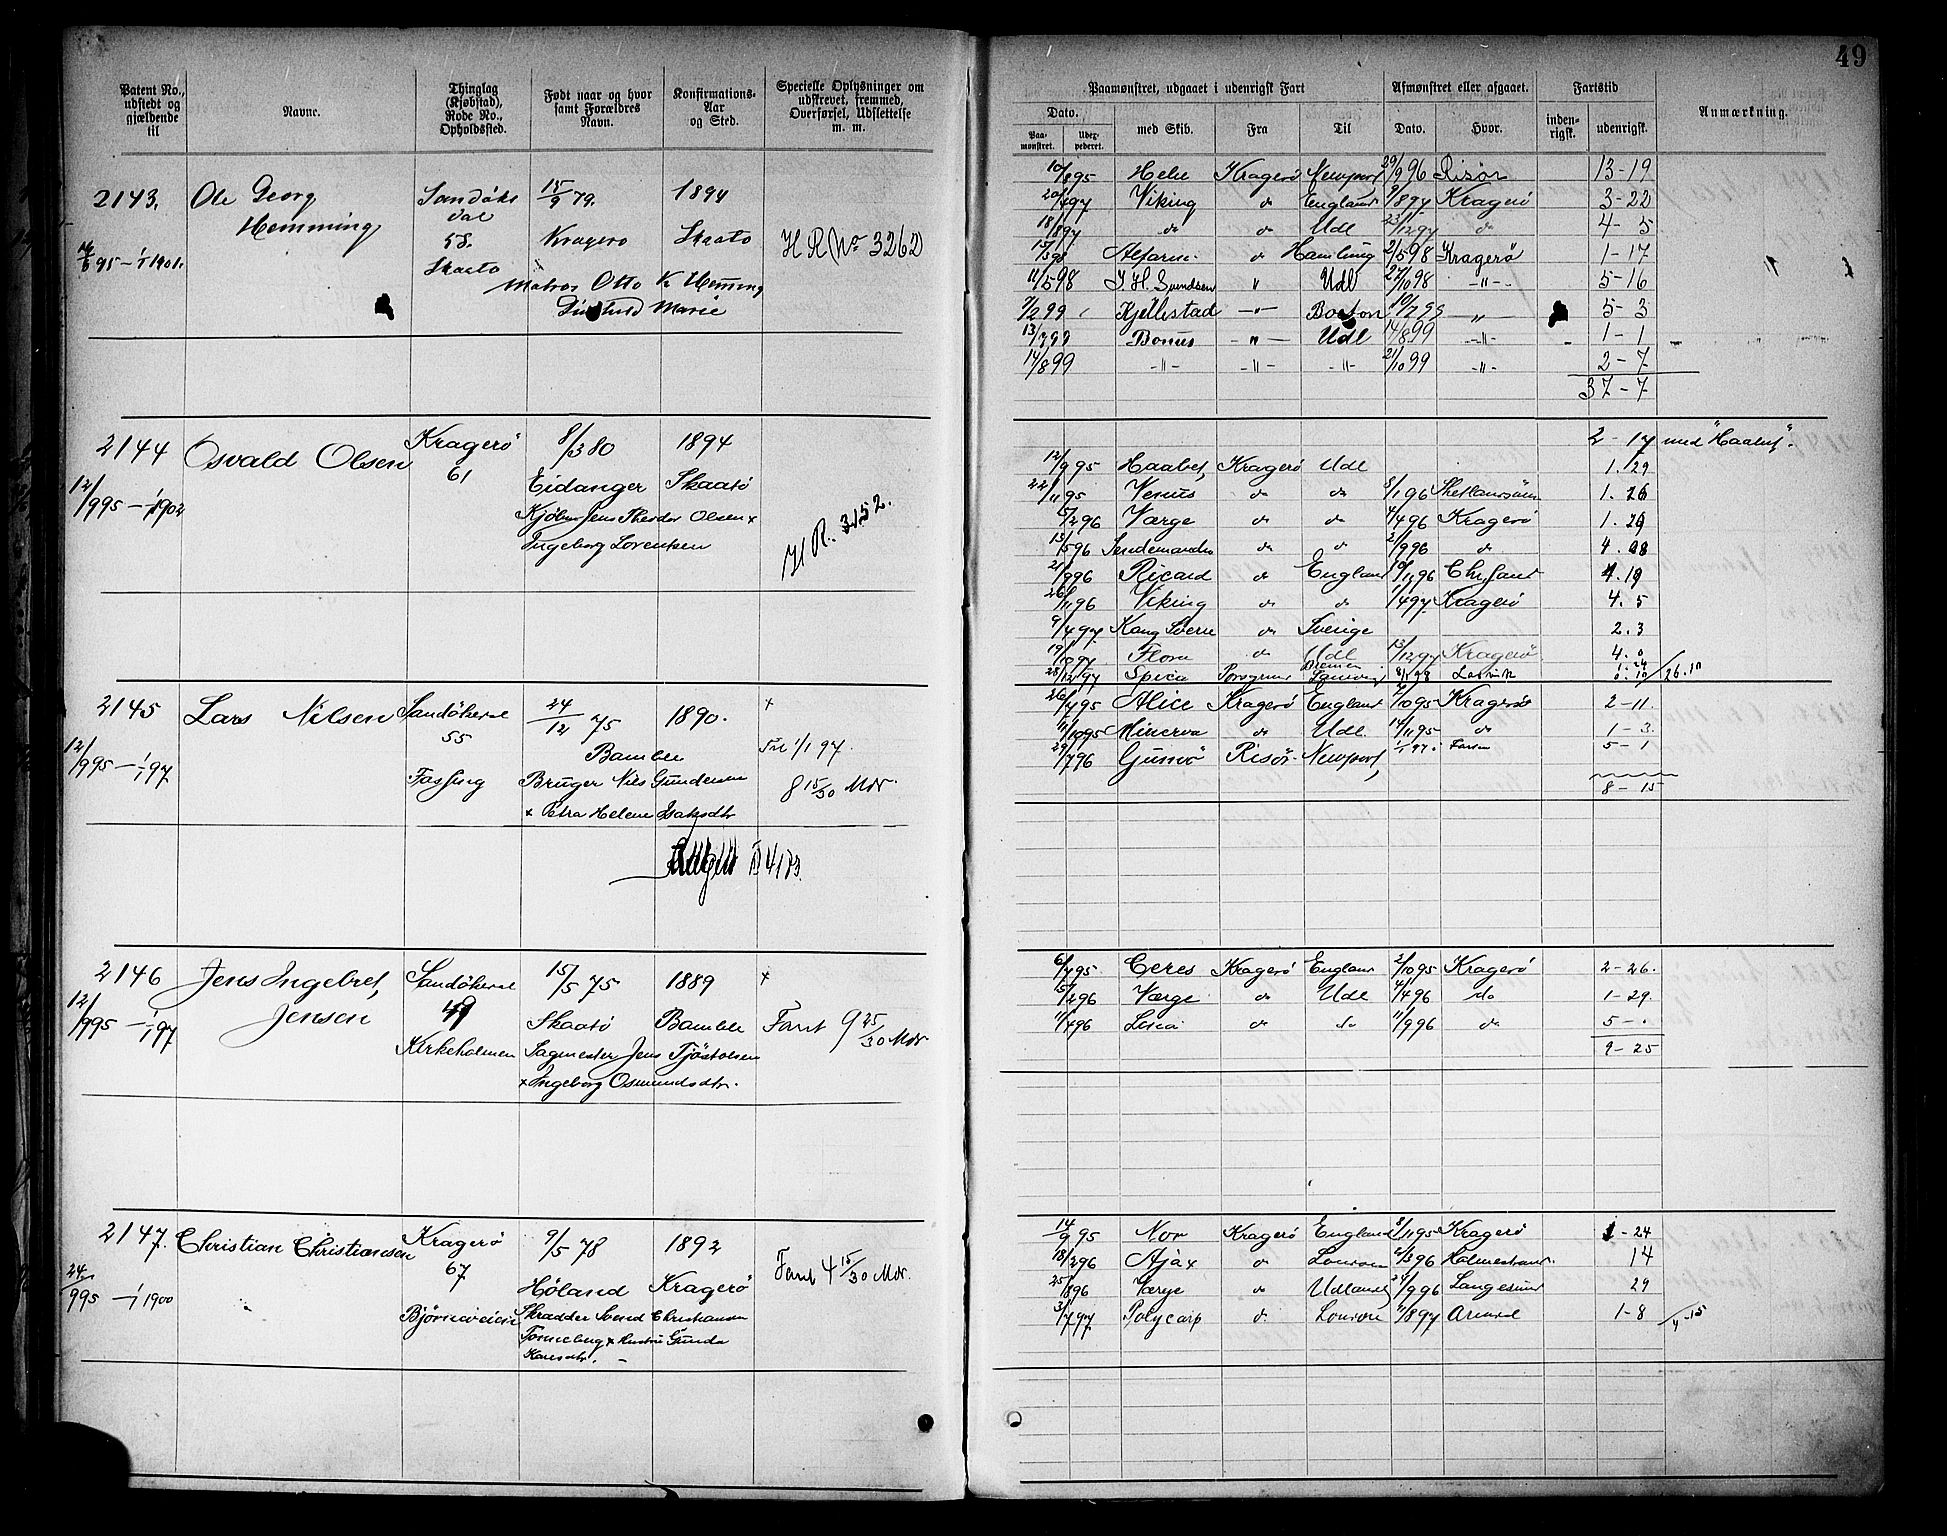 49
Patent No., udstedt og gjældende til
Navne.
Thinglag (Kjøbstad), Rode No., Opholdssted.
Født naar og hvor samt Forældres Navn.
Konfirmations- Aar og Sted.
Specielle Oplysninger om udskrevet, fremmed, Overførsel, Udslettelse m. m.
Paamønstret, udgaaet i udenrigsk Fart
Afmønstret eller afgaaet.
Fartstid
Anmærkning.
Dato.
Paa- mønstret.
Udex- pederet.
med Skib.
Fra
Til
Dato.
Hvor.
inden- rigsk.
udenrigsk.
2143. Ole Georg Hemming
95 – 1/1 1901.
58.
Skaatö
15/9 79.
Kragerö
Matros Otto K Hemming
Marie
1894
Skaatö
H R No 3262
10/8 95 Hebe Kragerö Newport 29/9 96 Risör 13-19
20/4 97 Viking do England 9/8 97 Kragerö 3-22
18/8 97 do do Udl 23/12 97 do 4-5
do Hamburg 2/5 98 Kragerö 1-17
11/5 98 J. H. Svendsen " Udl 27/10 98 -"- 5-16
7/2 99 Kjellestad -"- Boston 10/7 99 -"- 5-3
13/7 99 Bonus -"- Udl 14/8 99 -"- 1-1
14/8 99 -"- -"- -"- 21/10 99 -"- 2-7
37-7
2144 Osvald Olsen
12/9 95 – 1/1 1902
Kragerö
61
8/3 80
Eidanger
Jens Theodor Olsen x
Ingeborg Lorentzen
1894
Skaatö
H R. 3152.
2-17 med "Haabet".
12/9 95 Haabet, Kragerö Udl 1.29
22/11 95 Venus do do 8/1 96 1.26
5/2 96 Værge do do 4/4 96 Kragerö 1.29
13/5 96 do do 2/9 96 do 4.
21/9 96 Ricard do England 10/11 96 4.19
26/11 96 Viking do do 1/4 97 Kragerö 4.5
9/4 97 Kong Sverre do Sverige 2.3
19/10 97 Flora do Udl 13/12 97 Kragerö 4.0
28/12 97 Spica Porsgrund Bremen 26.10
2145 Lars Nilsen
12/9 95 – 1/1 97
55
24/12 75
Bamble
Bruger Nils Gundersen
x Petra Helene Isaksdtr
1890.
x
Frit 1/1 97.
8 15/30 Mdr.
4183.
26/7 95 Alice Kragerö England 7/10 95 Kragerö 2-11.
11/10 95 Minerva do Udl. 14/11 95 do 1-3.
29/7 96 Risör Newport, 5-1
8-15
2146 Jens Ingebret, Jensen
12/9 95 – 1/1 97
49
Kirkeholmen
15/5 75
Skaatö
Sagmester Jens Tjöstolsen
x Ingeborg Osmundsdtr.
1889
Bamble
x
Faret 9 25/30 Mdr
6/7 95 Ceres Kragerö England 2/10 95 Kragerö 2-26.
5/2 96 Værge do Udl 4/4 96 do 1-29.
11/4 96 do do 11/9 96 do 5-.
9-25
2147. Christian Christiansen
24/9 95 – 1/1 1900
Kragerö
67
Björneveien
9/5 78
Höland
Skrædder Svend Christiansen
x Hustru Gunda
1892
Kragerö
Faret 4 15/30 Mdr.
14/9 95 Nor Kragerö England 8/11 95 Kragerö 1-24
18/2 96 Ajax do London 2/3 96 Holmestrand. 14
25/8 96 Værge do Udlandet 24/9 96 Langesund 29
3/7 97 Polycarp do London 11/8 97 Arendal 1-8
4-15